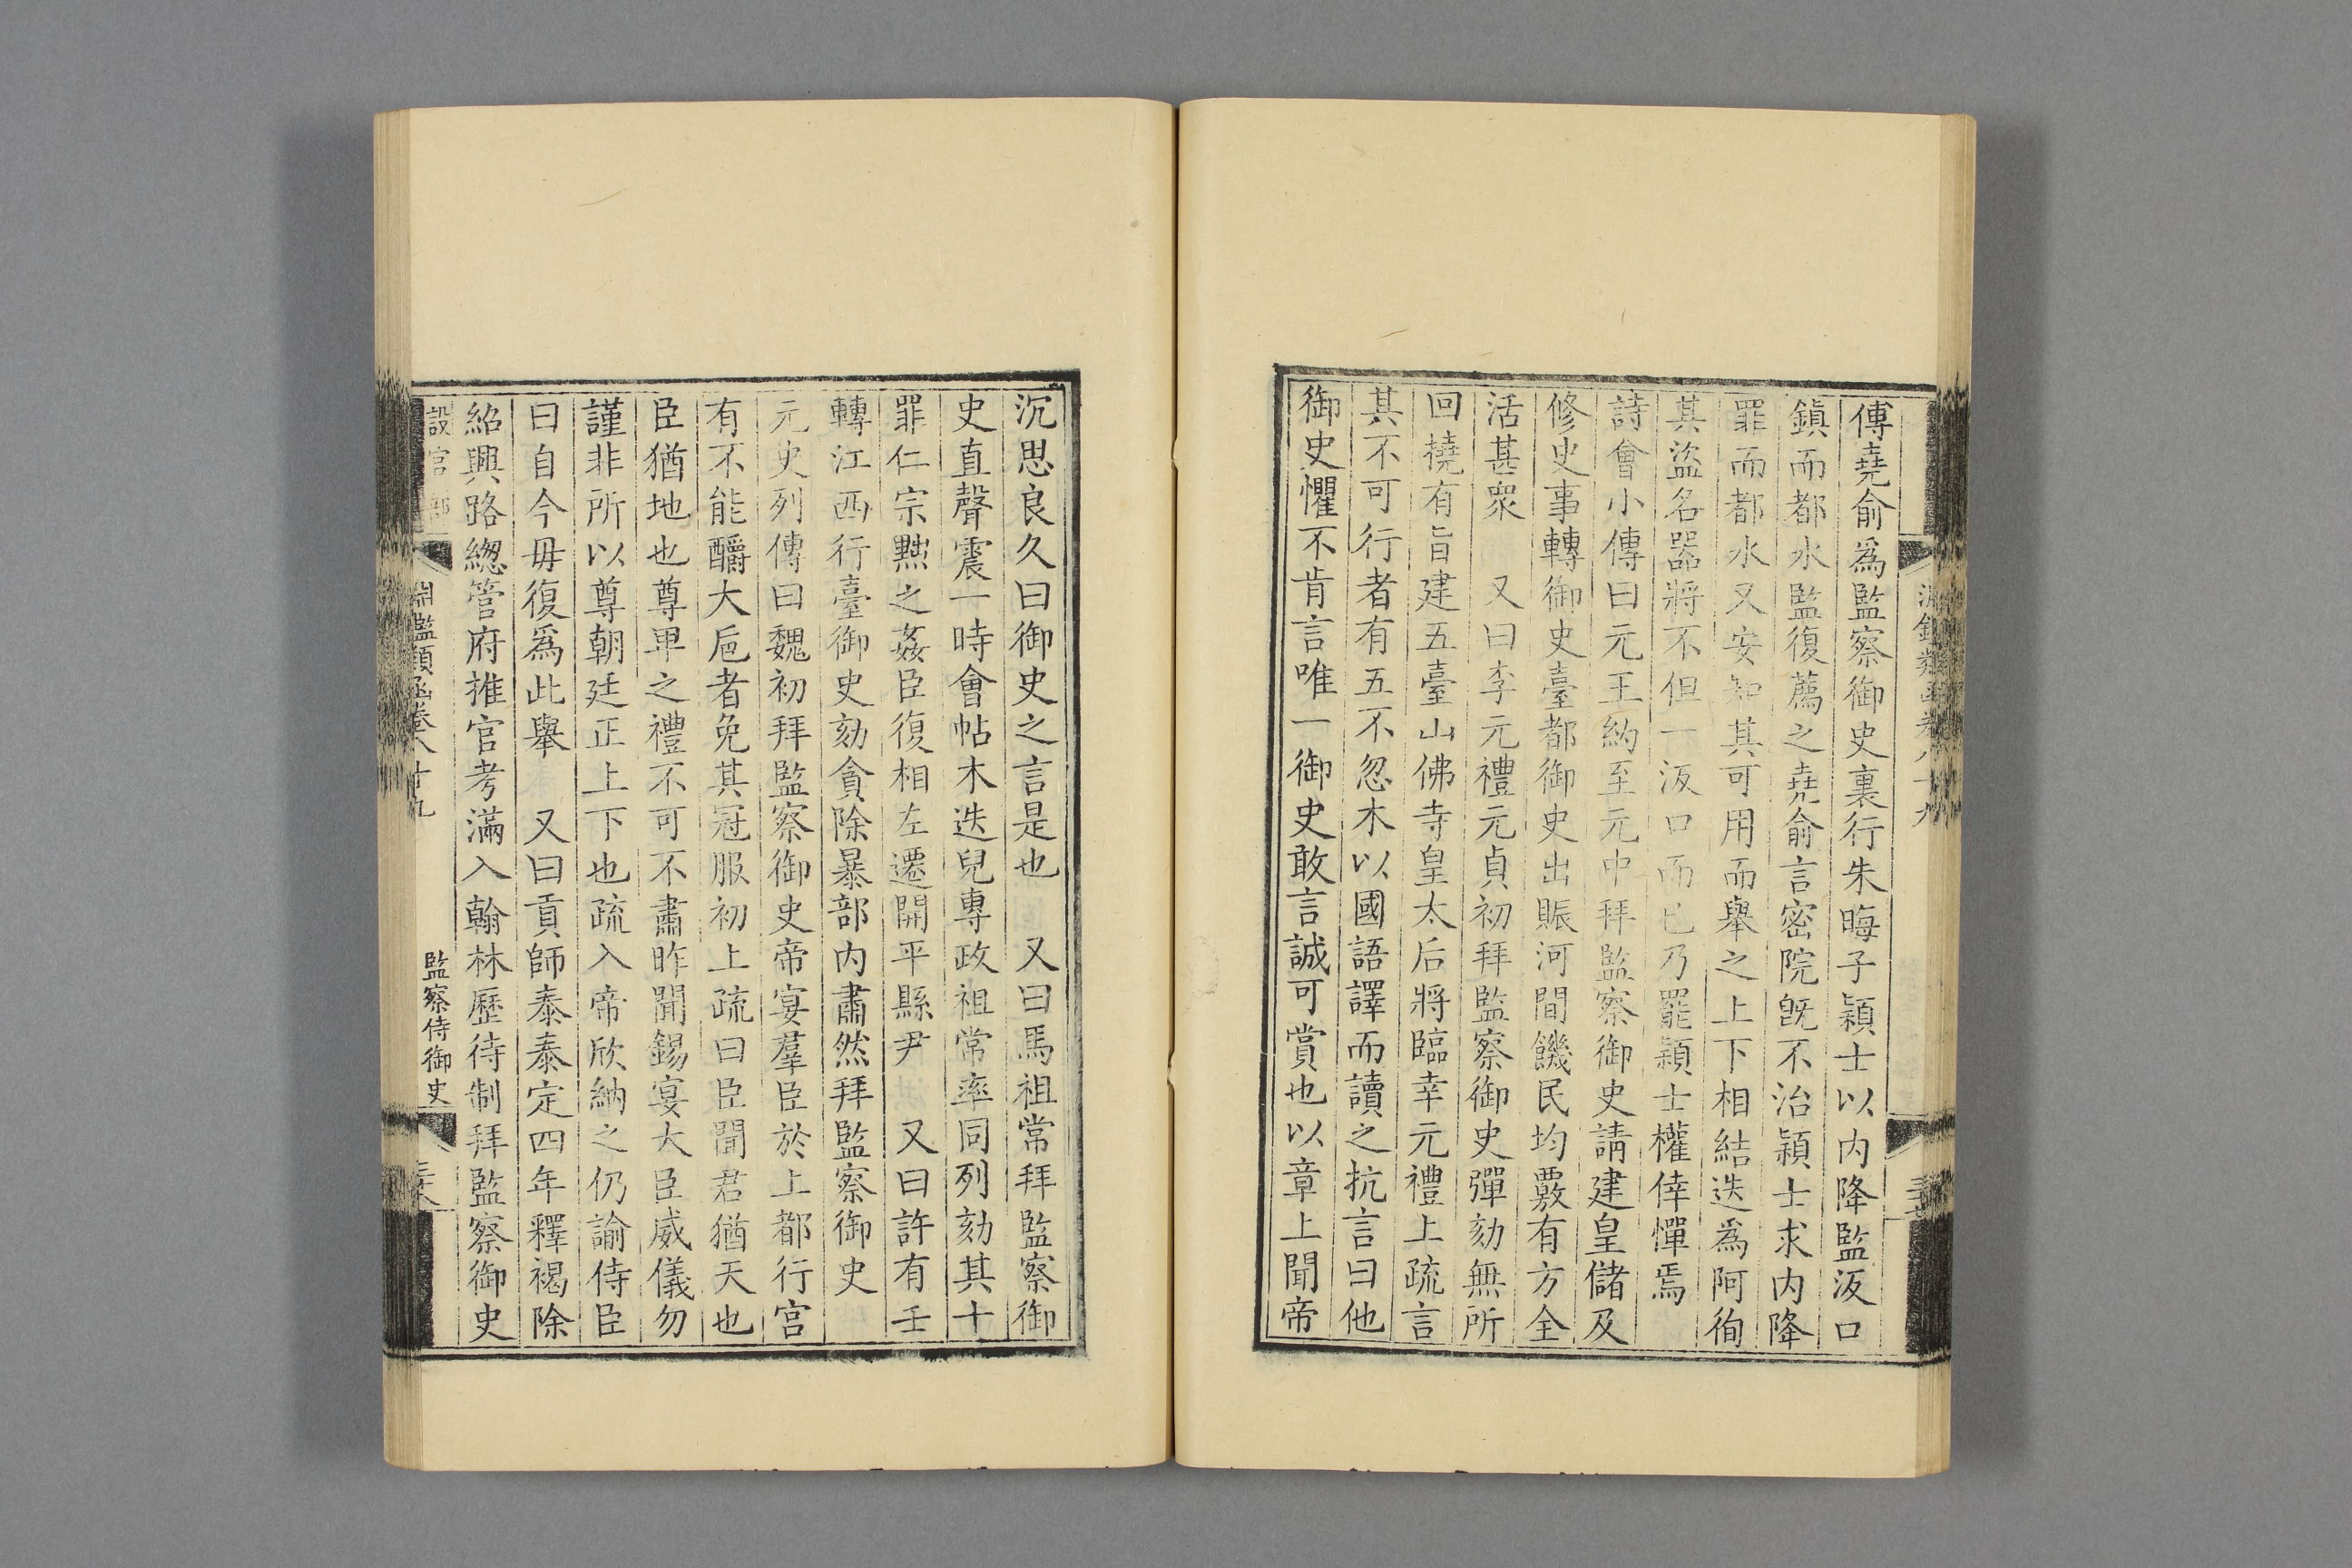 傅堯俞爲監察御史裏行朱晦子穎士以内降監汳口
鎮而都水監復薦之堯俞言密院旣不治穎士求内降
罪而都水又安知其可用而舉之上下相結迭爲阿徇
其盜名器將不但一汳口而已乃罷穎士權倖憚焉
詩會小傳曰元王約至元中拜監察御史請建皇儲及
修史事轉御史臺都御史出賑河間饑民均覈有方全
活甚衆　又曰李元禮元貞初拜監察御史彈劾無所
回撓有旨建五臺山佛寺皇太后將臨幸元禮上疏言
其不可行者有五不忽木以國語譯而讀之抗言曰他
御史懼不肯言唯一御史敢言誠可賞也以章上聞帝
沉思良久曰御史之言是也　又曰馬祖常拜監察御
史直聲震一時會帖木迭兒專政祖常率同列劾其十
罪仁宗黜之姦臣復相左遷開平縣尹　又曰許有壬
轉江西行臺御史劾貪除暴部内肅然拜監察御史
元史列傳曰魏初拜監察御史帝宴羣臣於上都行宫
有不能釂大巵者免其冠服初上疏曰臣聞君猶天也
臣猶地也尊卑之禮不可不肅昨聞錫宴大臣威儀勿
謹非所以尊朝廷正上下也疏入帝欣納之仍諭侍臣
曰自今毋復爲此舉　又曰貢師泰泰定四年釋褐除
紹興路緫管府推官考滿入翰林歷待制拜監察御史
設官部
淵鑑類函卷八十九
監察侍御史